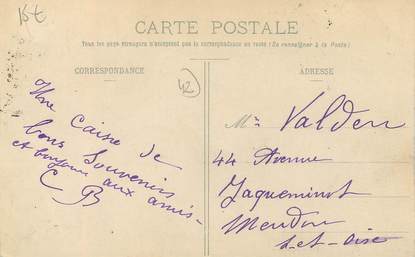 15 €
CARTE POSTALE
Tous les pays étrangers n'acceptent pas la correspondance au recto (Se renseigner à la Poste)
CORRESPONDANCE
42
ADRESSE
Une caisse de
bons Souvenirs
et bonjour aux amis -
C B
Mr Valden
44 Avenue
Jaqueminot
Meudon
S-et-Oise